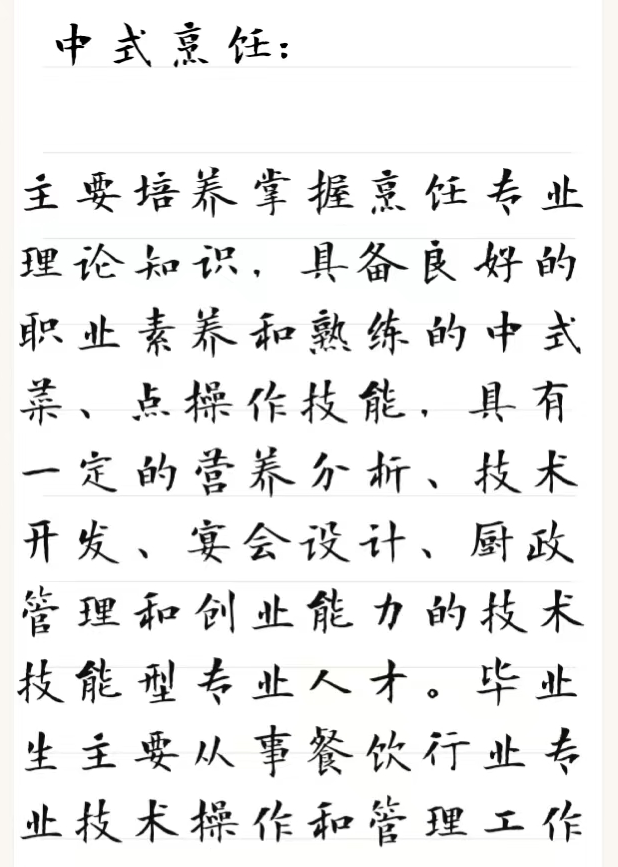 中式烹饪：
主要培养掌握烹饪专业
理论知识，具备良好的
职业素养和熟练的中式
菜、点操作技能，具有
一定的营养分析、技术
开发、宴会设计、厨政
管理和创业能力的技术
技能型专业人才。毕业
生主要从事餐饮行业专
业技术操作和管理工作